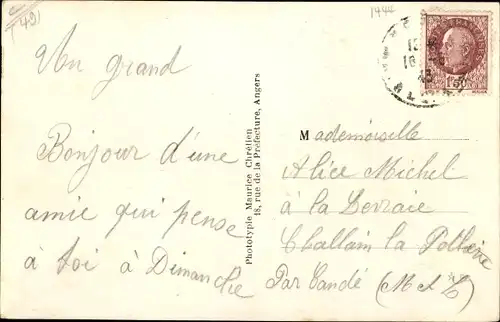 (49)
1944
Un grand
Bonjour d'une
amie qui pense
à toi à Dimanche
Phototypie Maurice Chrétien
18, rue de la Préfecture, Angers
Mademoiselle
Alice Michel
à la
Challain la Potherie
Par Candé (M et L)
1F50